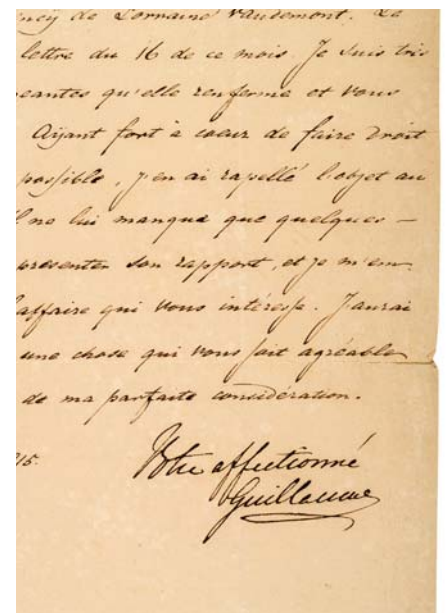 ncy de Lorraine Vaudemont. Le
lettre du 16 de ce mois. Je suis très
geantes qu'elle renferme et vous
Ayant fort à coeur de faire droit
possible, j'en ai rapellé l'objet au
il ne lui manque que quelques —
presenter son rapport, et je m'em-
l'affaire qui vous intéresse. J'aurai
une chose qui vous soit agréable
de ma parfaite considération.
15.
Votre affectionné
Guillaume